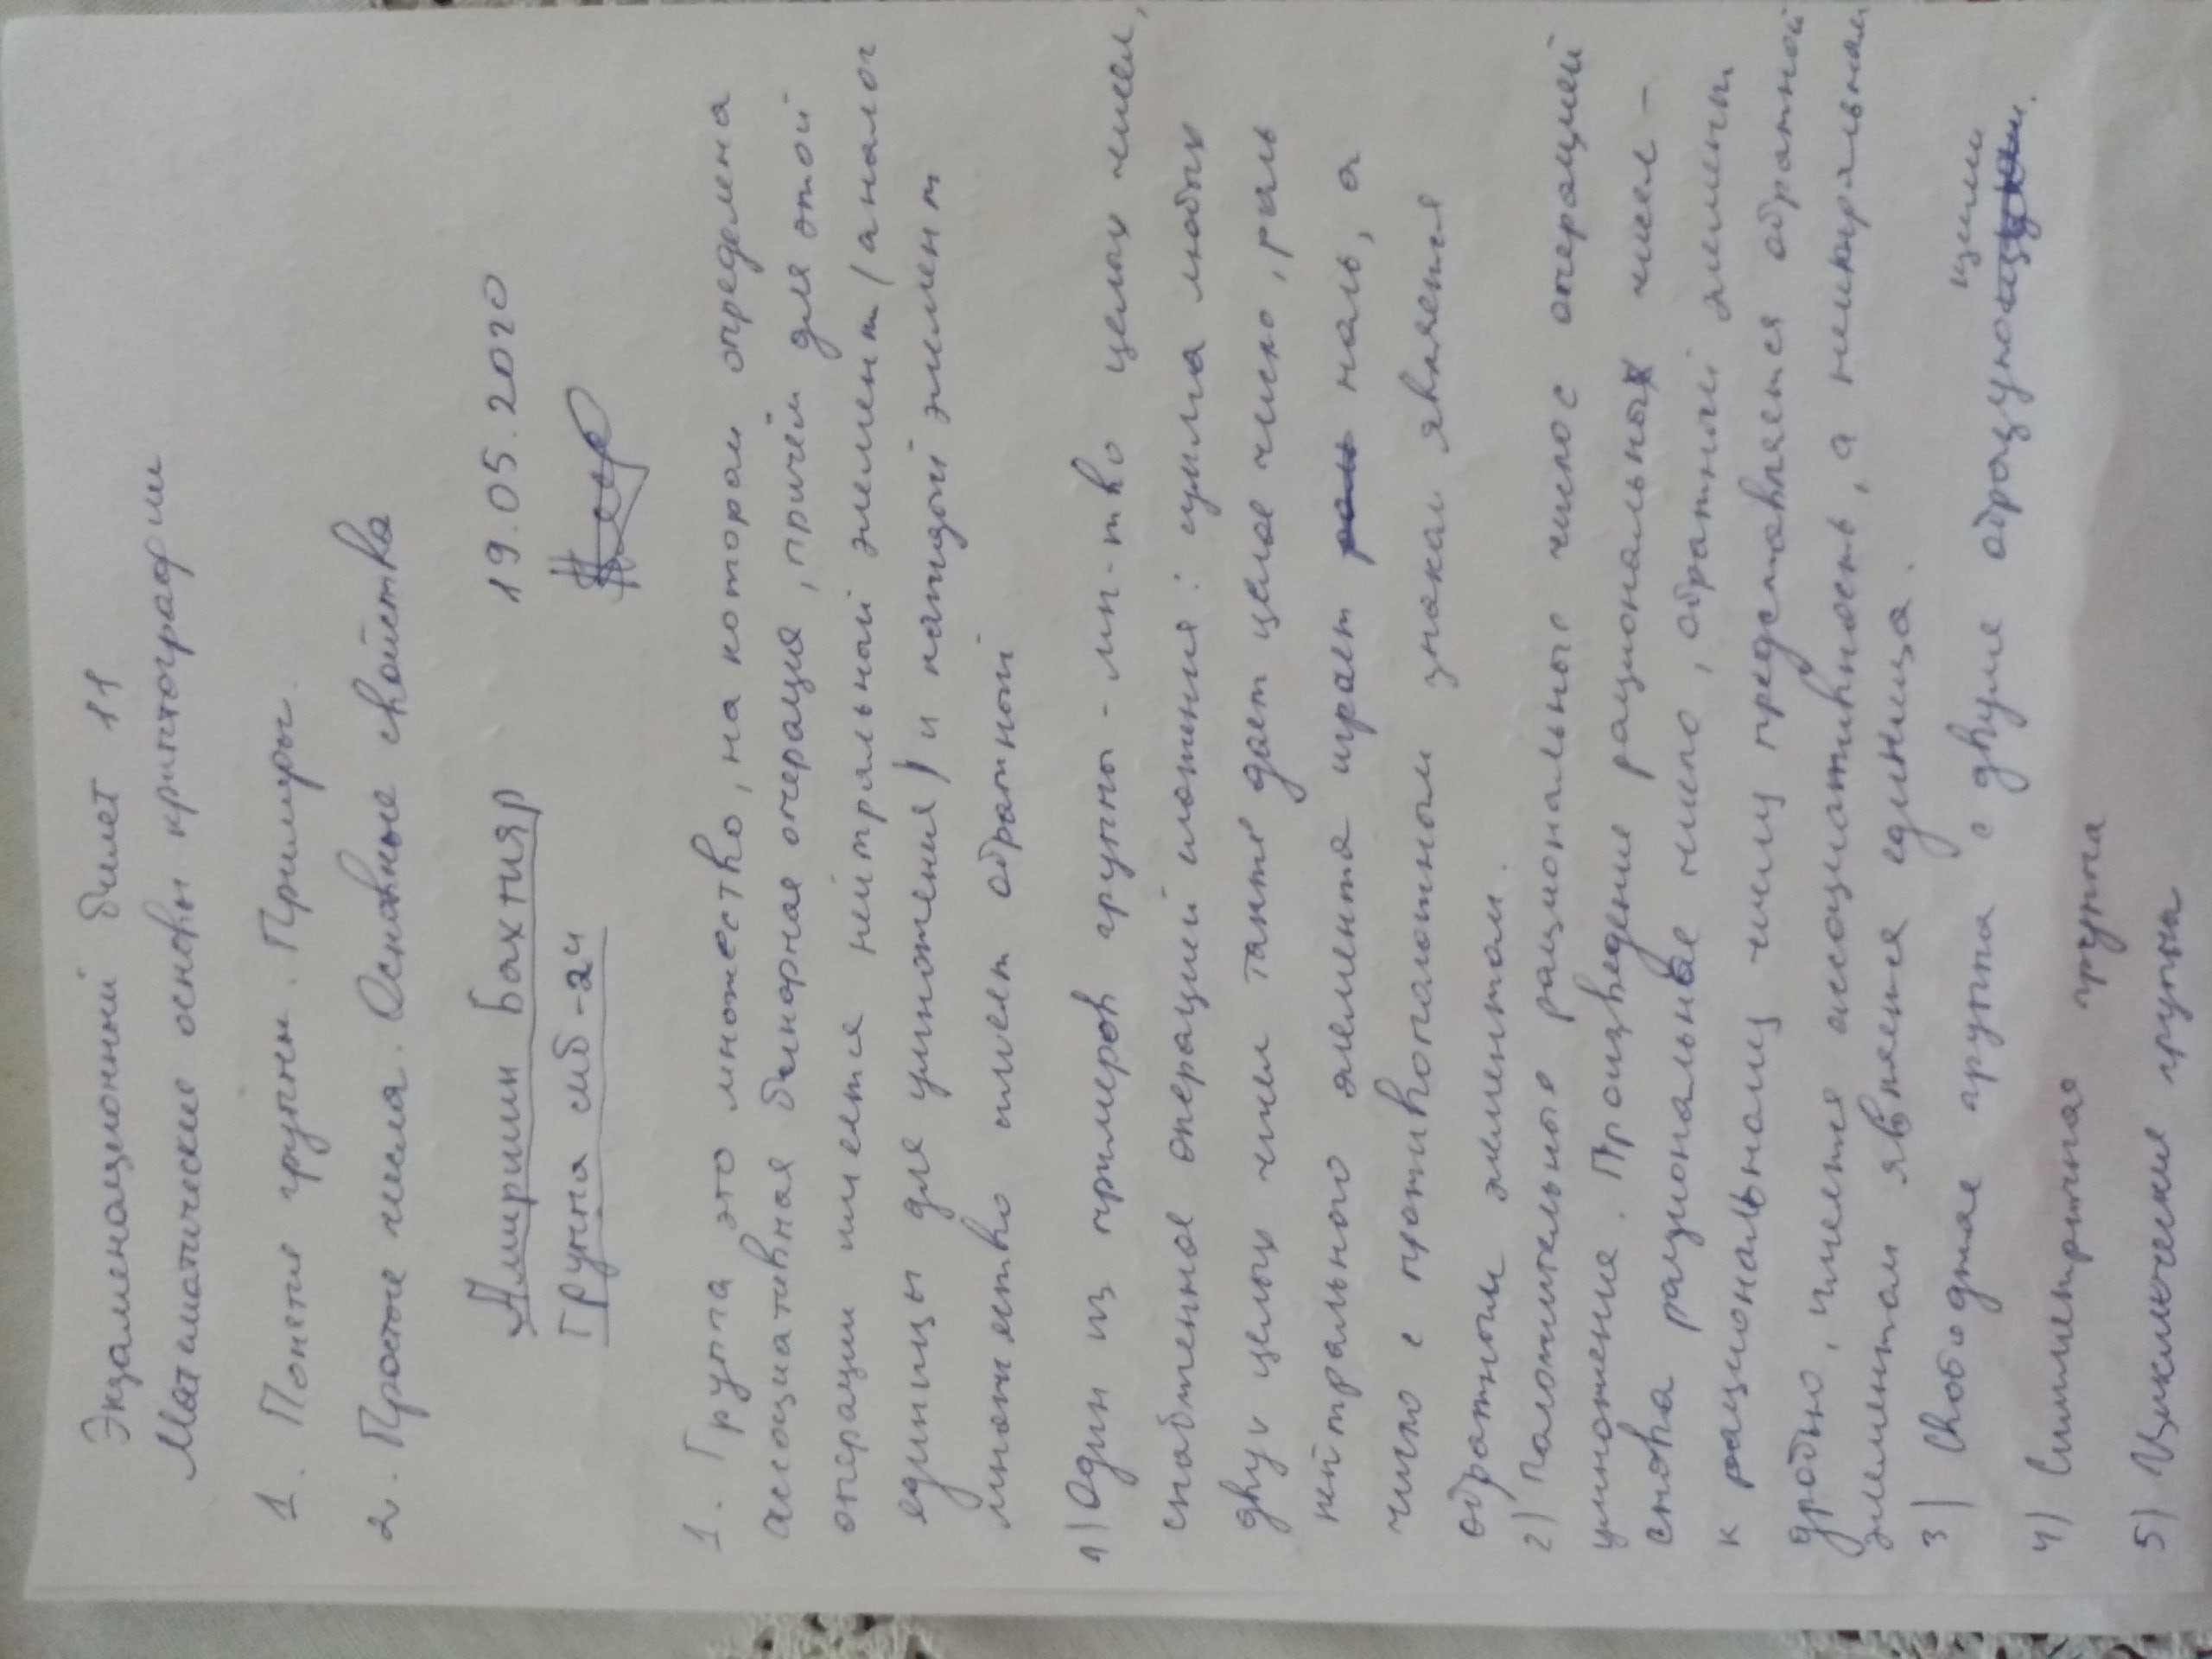 Экзаменационный билет 11
Математические основы криптографии
1. Понятие группы. Примеры.
2. Простые числа. Основные свойства
Амиршин Бахтияр 19.05.2020
Группа смб-24
1. Группа это множество, на котором определена
ассоциативная бинарная операция, причём для этой
операции имеется нейтральный элемент (аналог
единицы для умножения) и каждый элемент
множества имеет обратный
1) Один из примеров группы - мн-тво целых чисел,
снабженное операцией сложения: сумма любых
двух целых чисел также даёт целое число, роль
нейтрального элемента играет ноль, а
число с противоположным знаком является
обратным элементом.
2) Положительные рационального число с операцией
умножение. Произведение рациональных чисел -
снова рациональное число, обратный элемены
к рациональному числу представляется обратной
дробью, имеется ассоциативность, а нейтральным
элементом является единица.
3) Свободная группа с двумя образующими.
4) Симметричная группа
5) Циклические группы